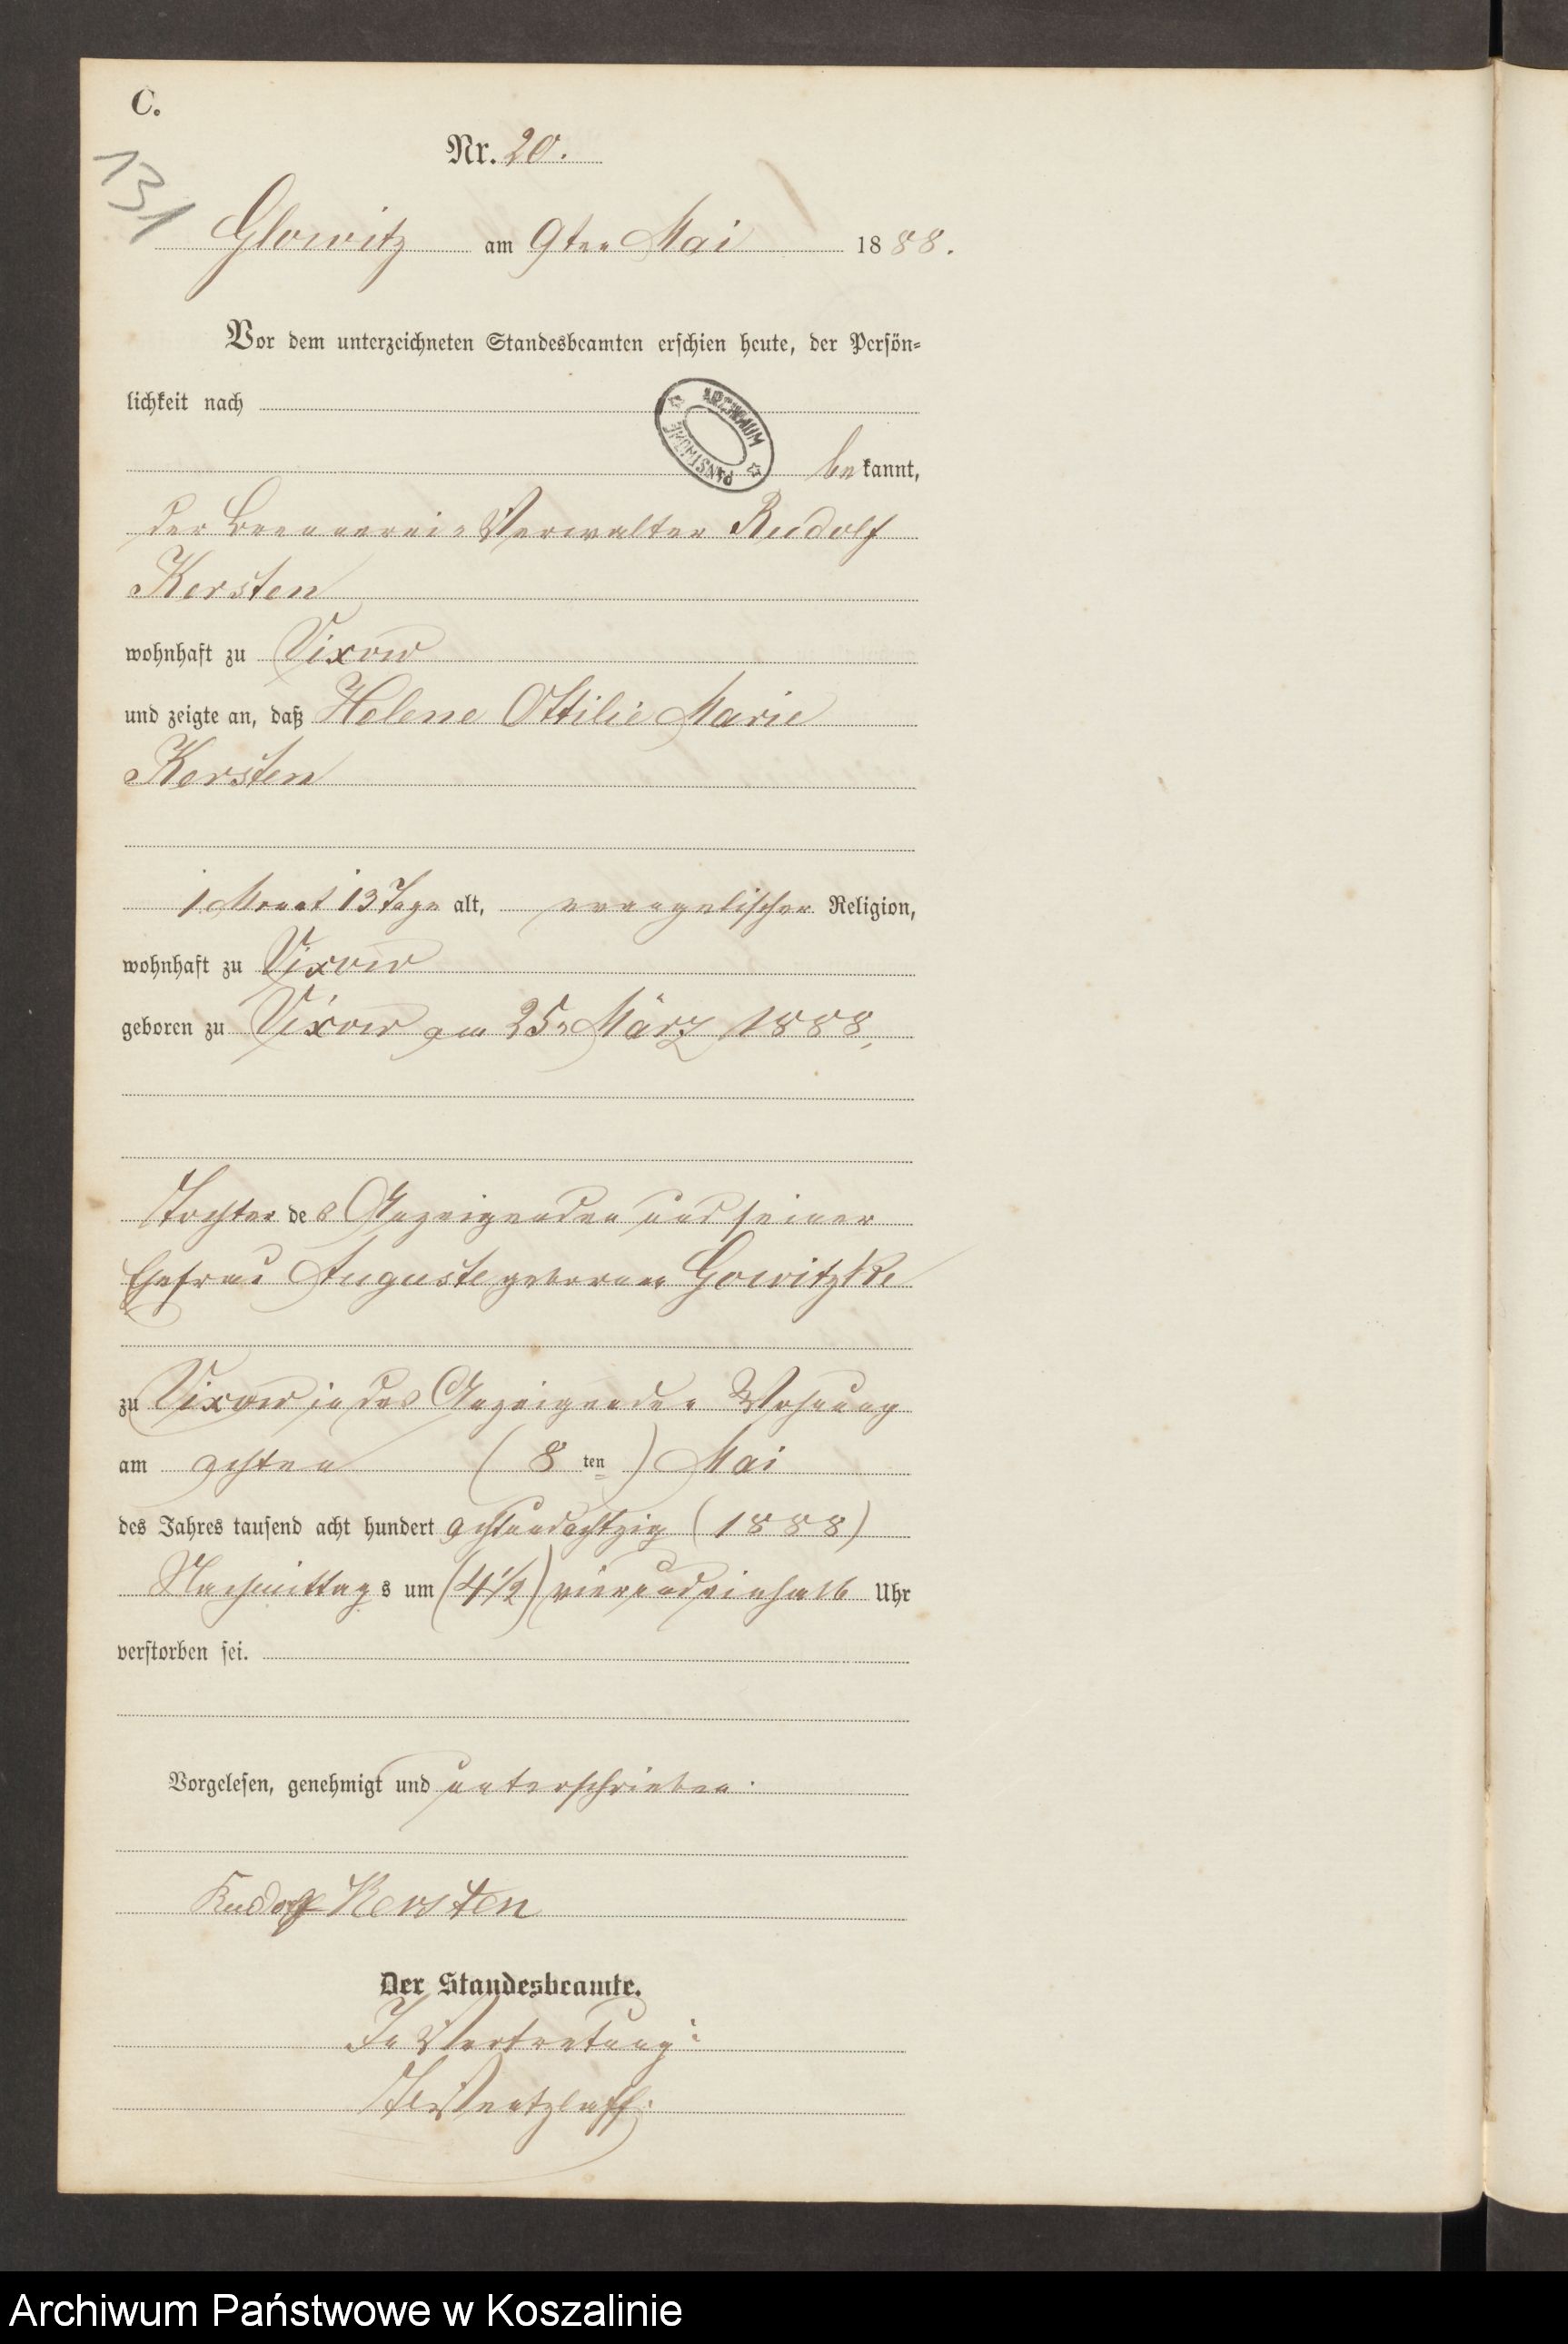 C.
Nr. 20.
131
Glowitz am 9ten Mai 1888.
Vor dem unterzeichneten Standesbeamten erschien heute, der Persön=
lichkeit nach
ARCHIWUM PAŃSTWOWE
bekannt,
der Brennerei-Verwalter Rudolf
Kersten
wohnhaft zu Vixow
und zeigte an, daß Helene Ottilie Marie
Kersten
1 Monat 13 Tage alt, evangelischer Religion,
wohnhaft zu Vixow
geboren zu Vixow am 25. März 1888,
Tochter des Anzeigenden und seiner
Ehefrau Auguste geborene Gowitzke
zu Vixow in des Anzeigenden Wohnung
am achten (8ten) Mai
des Jahres tausend acht hundert achtundachtzig (1888)
Nachmittags um (4 1/2) vierundeinhalb Uhr
verstorben sei.
Vorgelesen, genehmigt und unterschrieben.
Rudolf Kersten
Der Standesbeamte.
In Vertretung:
Archiwum Państwowe w Koszalinie